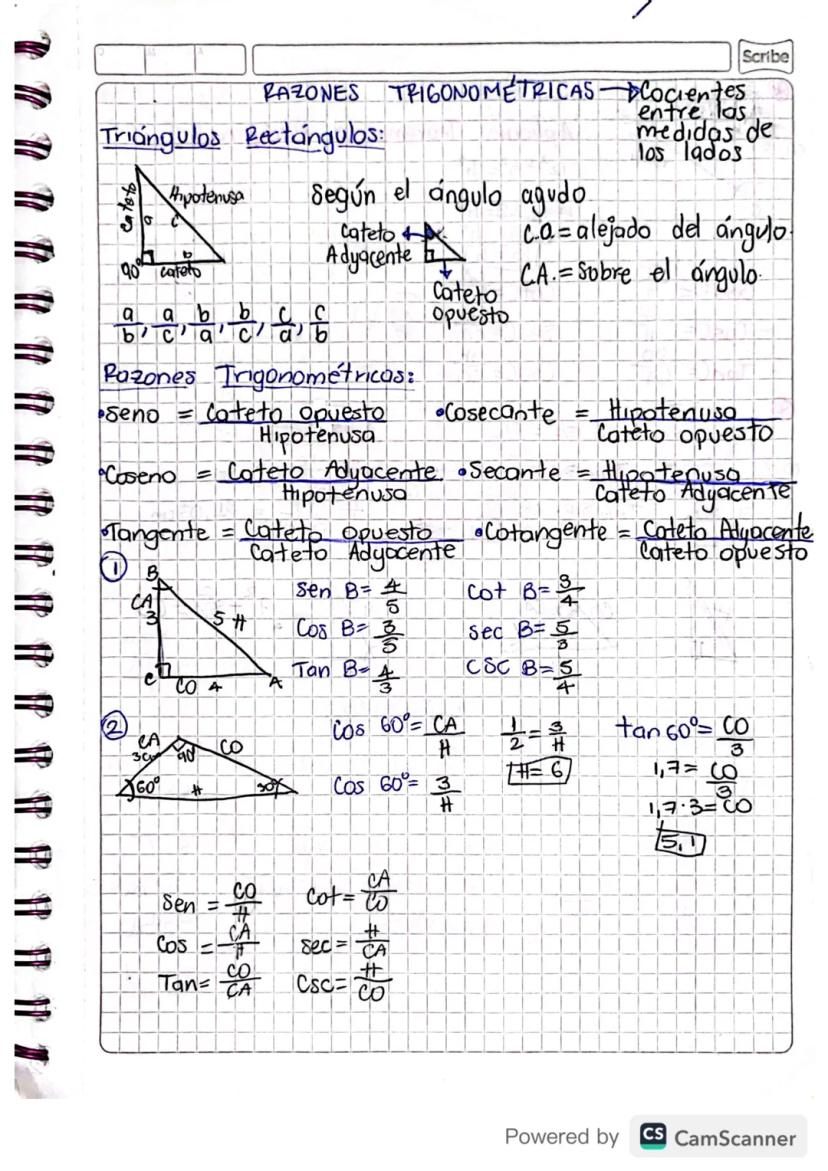 Scribe
RAZONES TRIGONOMÉTRICAS → Cocientes
entre las
medidas de
los lados
Triángulos Rectángulos:
cateto
Hipotenusa
a
c
b
90°
cateto
Según el ángulo agudo
Cateto
Adyacente
Cateto
opuesto
c.o = alejado del ángulo.
CA. = Sobre el ángulo.
a/b, a/c, b/a, b/c, c/a, c/b
Razones Trigonométricas:
•Seno = Cateto opuesto / Hipotenusa •Cosecante = Hipotenusa / Cateto opuesto
•Coseno = Cateto Adyacente / Hipotenusa •Secante = Hipotenusa / Cateto Adyacente
•Tangente = Cateto opuesto / Cateto Adyacente •Cotangente = Cateto Adyacente / Cateto opuesto
①
B
CA
3
5 H
C
CO 4
A
Sen B= 4/5 Cot B= 3/4
Cos B= 3/5 sec B= 5/3
Tan B= 4/3 CSC B= 5/4
②
CA
3cm
90
CO
60°
H
30°
Cos 60°= CA/H
Cos 60°= 3/H
1/2 = 3/H
H= 6
tan 60°= CO/3
1,7= CO/3
1,7·3=CO
5,1
Sen = CO/H Cot= CA/CO
Cos = CA/H sec= H/CA
Tan= CO/CA Csc= H/CO
Powered by CS CamScanner